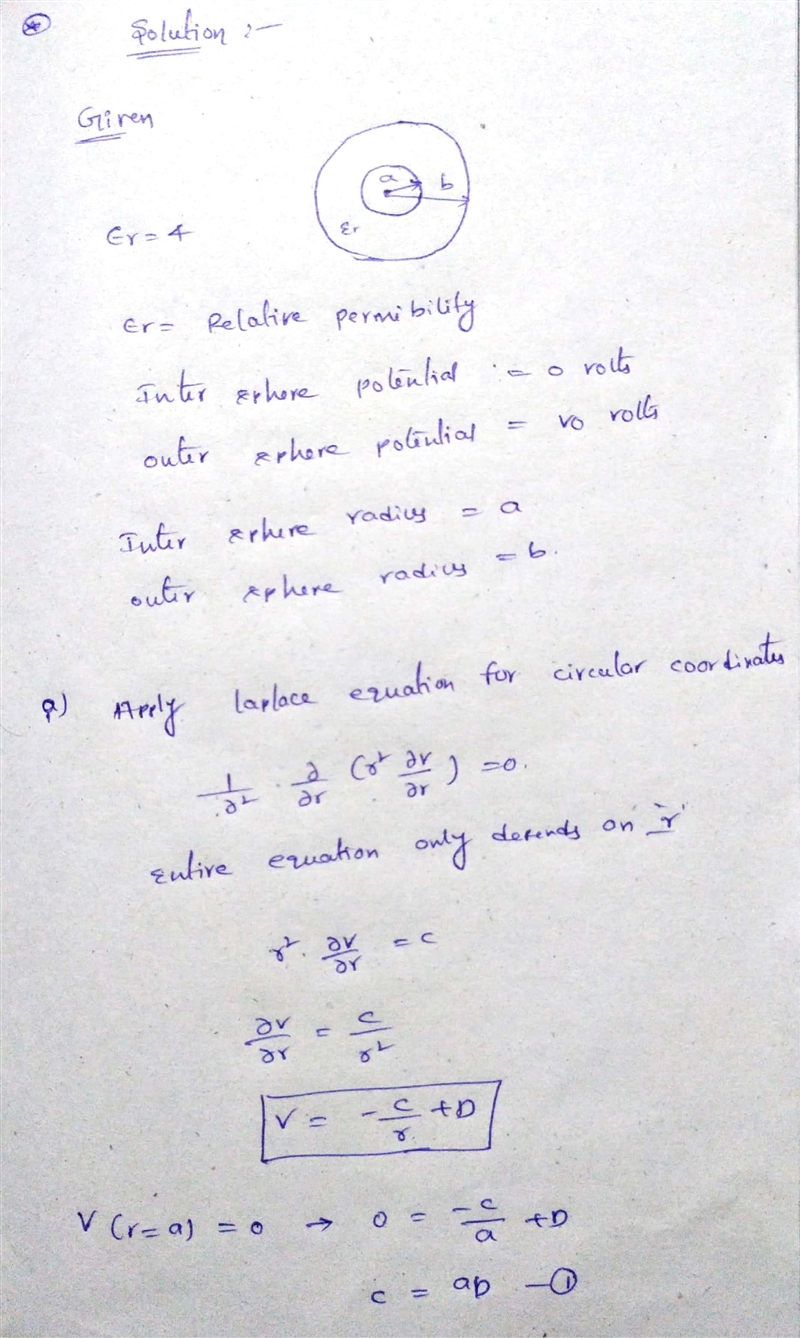 Solution :-
Given
a b
Er
Er = 4
Er = Relative permibility
Inter sphere potential = 0 volts
outer sphere potential = vo volts
Inter sphere radius = a
outer sphere radius = b.
a) Apply laplace equation for circular coordinates
1/∂² · ∂/∂r (r² ∂v/∂r) = 0.
Entire equation only depends on 'r'
r² · ∂v/∂r = c
∂v/∂r = c/r²
V = -c/r + D
V (r=a) = 0 → 0 = -c/a + D
c = aD - ①